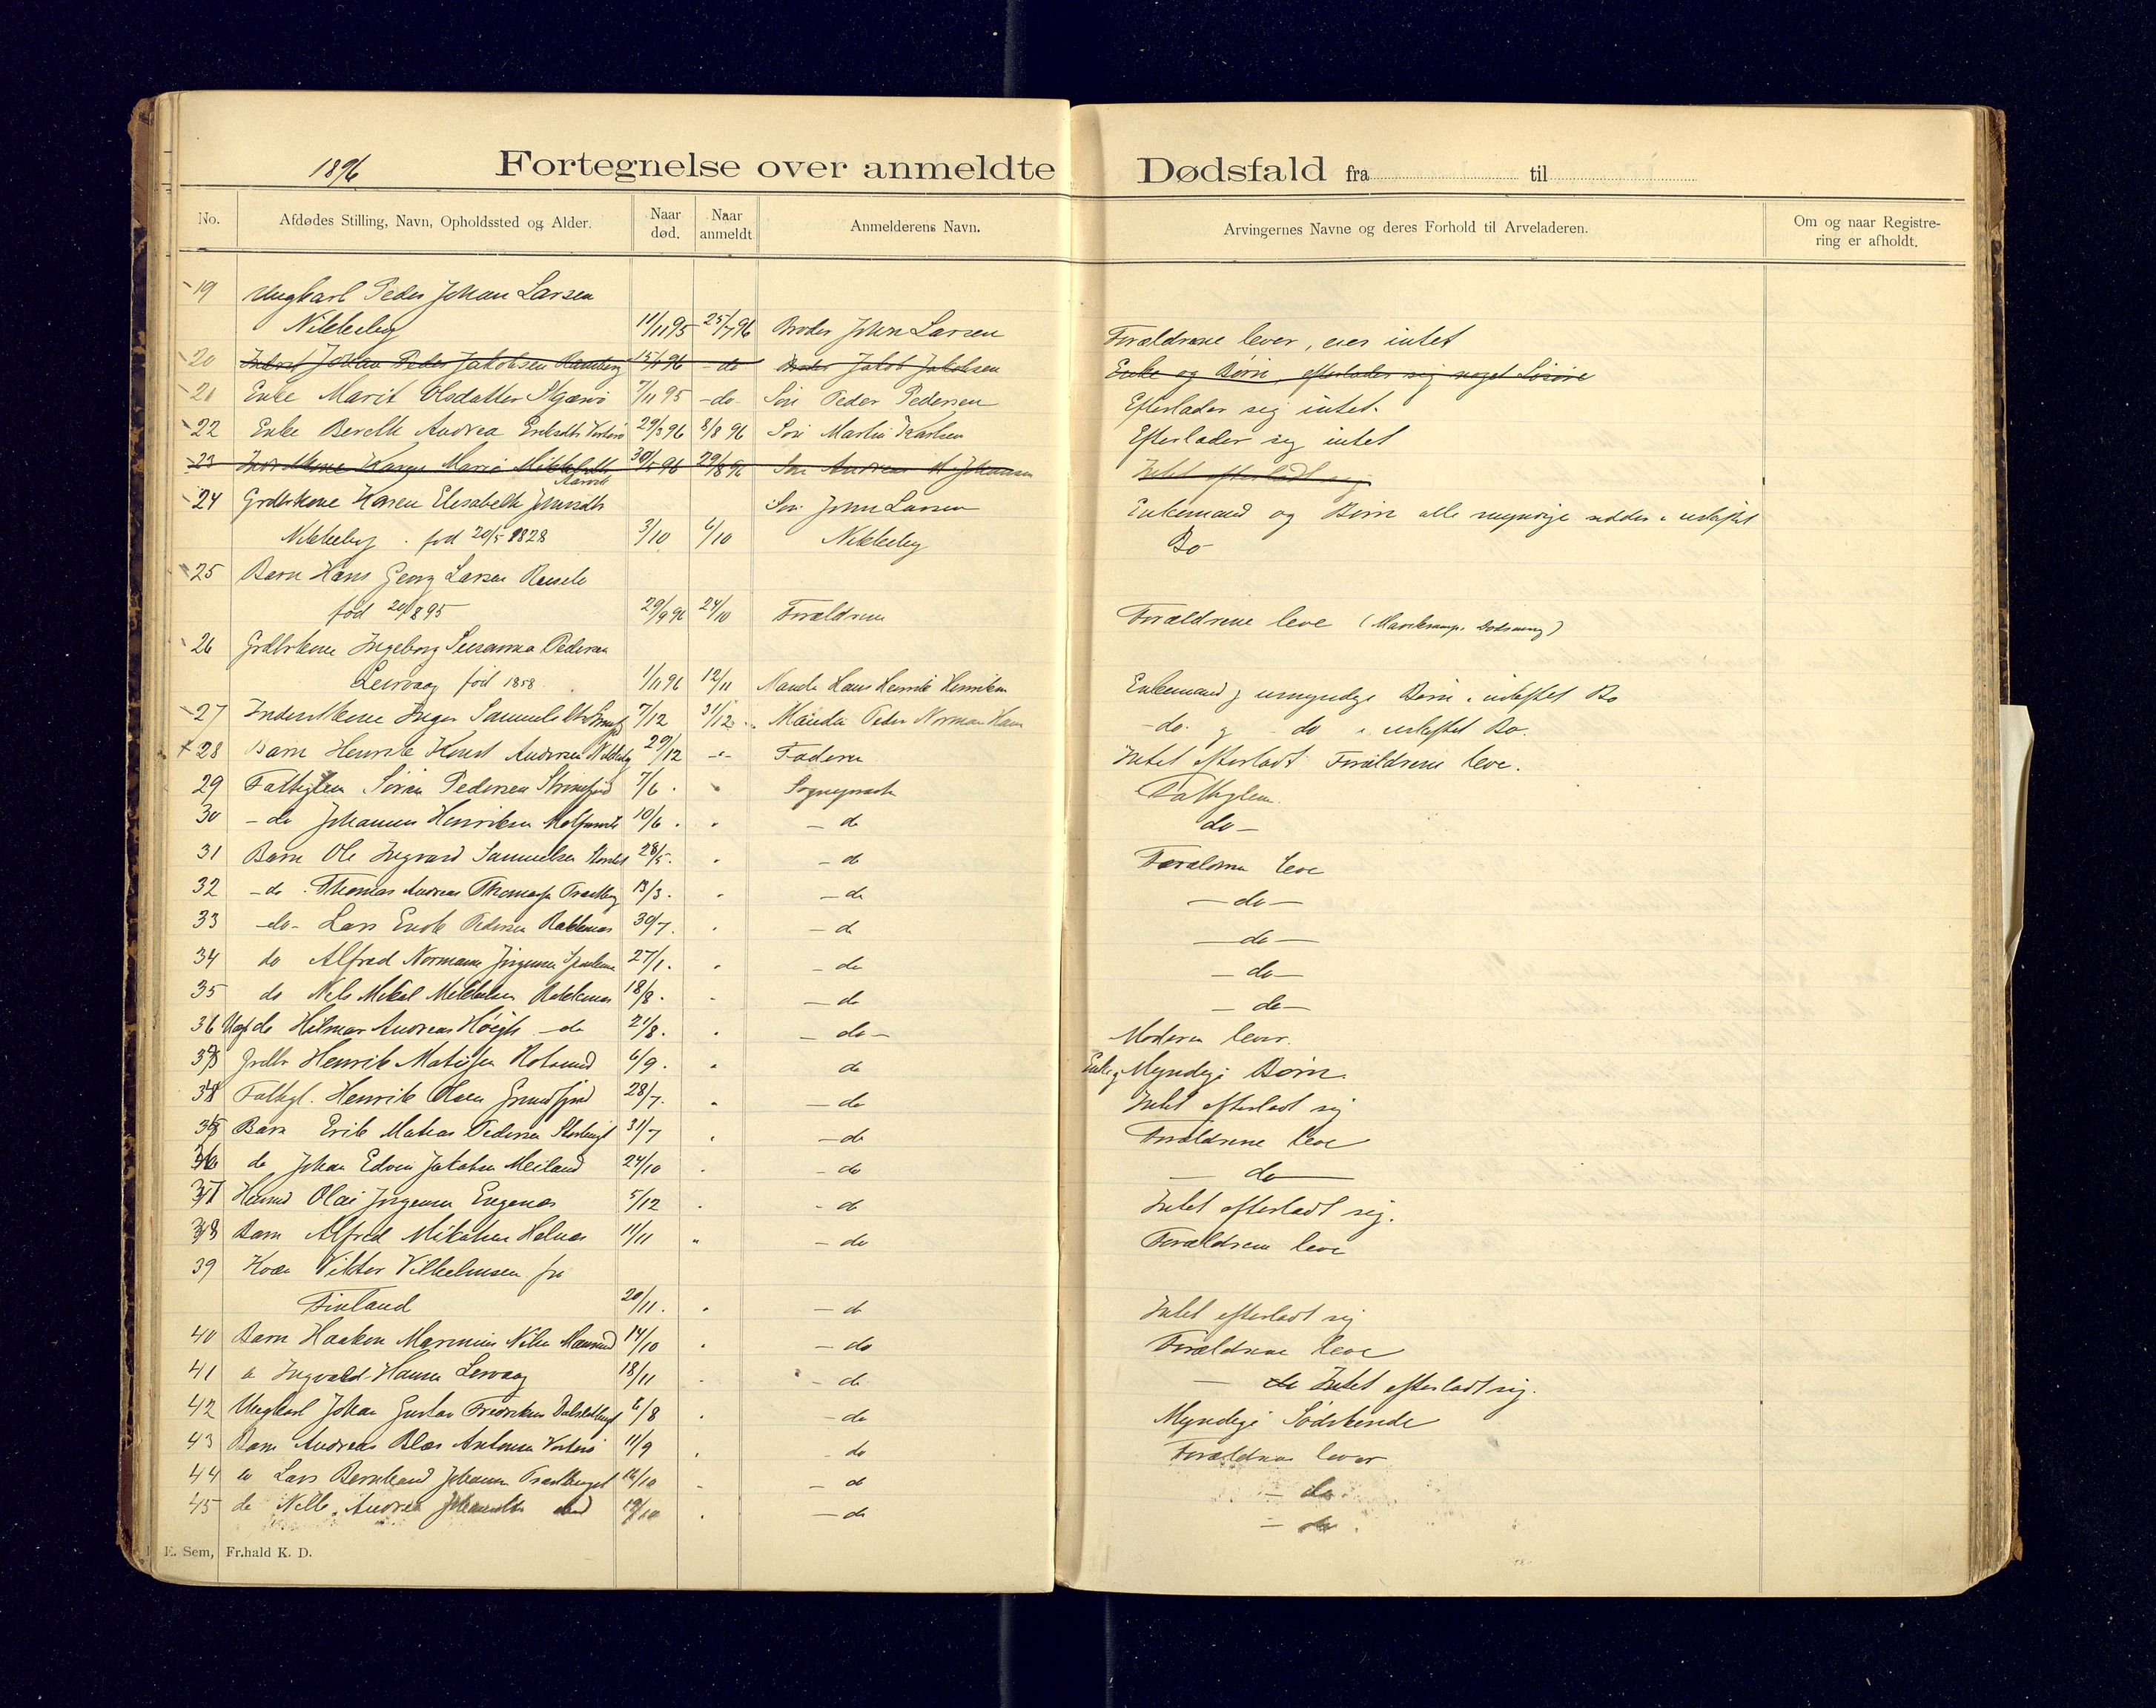 1896
Fortegnelse over anmeldte Dødsfald fra til
No. Afdødes Stilling, Navn, Opholdssted og Alder. Naar død. Naar anmeldt Anmelderens Navn. Arvingernes Navne og deres Forhold til Arveladeren. Om og naar Registrering er afholdt.
19 Ungkarl Peder Johan Larsen
Nikkeby 11/11 95 25/7 96 Broder John Larsen Forældrene lever, eies intet
20 Inderst Johan Peder Jakobsen 15/1 96 - do Broder Jakob Jakobsen Enke og Børn, efterlader sig noget Løsøre
21 Enke Marit Olsdatter Skjærvø 7/11 95 - do - Søn Peder Pedersen Efterlader sig intet.
22 Enke Bereth Andrea Eriksdtr Vorterø 29/3 96 8/8 96 Søn Martin Karlsen Efterlader sig intet
23 Karen Marie Mikkelsdtr 30/5 96 29/8 96 Søn Andreas Johansen Intet efterladt sig
24 Grdbrkone Karen Elisabeth Johnsdtr Søn John Larsen Enkemand og Børn alle myndige sidder i uskiftet
Nikkeby. fød 20/5 1828 3/10 6/10 Nikkeby Bo
25 Barn Hans Georg Larsen
fød 20/8 95 29/9 96 24/10 Forældrene Forældrene leve
26 Grdbrkone Ingeborg Susanna Pedersen
Leirvaag fød 1858 1/11 96 12/11 Manden Hans Henrik Henriksen Enkemand og umyndige Børn i uskiftet Bo
27 Inderstkone Inger Samuelsdtr 7/12 31/12 Manden Peder Norman Hansen - do. og - do i uskiftet Bo.
28 Barn Henrik Kornel Andersen Nikkeby 29/12 -"- Faderen Intet efterladt Forældrene leve.
29 Fattiglem Sørin Pedersen 7/6 . " Sognepresten Fattiglem.
30 - do Johannes Henriksen 10/6 . " - do do -
31 Barn Ole Ingvard Samuelsen 28/5 . " - do Forældrene leve
32 - do Thomas Andreas Thomassen 13/3 . " - do - do -
33 - do - Lars Enok Pedersen Rakkenes 30/7 . " - do - do -
34 do Alfred Normann Jørgensen 27/1 . " - do - do -
35 do Nels Mikal Mikkelsen Rakkenes 18/8 . " - do - do -
36 Ungk do Hilmar Andreas Høegh - do 21/8 . " - do - Moderen lever.
Grdbr Henrik Mathisen Rotsund 6/9 . " do Enke og Myndige Børn.
Fattigl. Henrik Olsen 28/7 . " - do Intet efterladt sig
Barn Erik Matias Pedersen 31/7 " - do Forældrene leve
do Johan Edvin Jakobsen Meiland 24/10 " - do - do -
Olai Jørgensen 5/12 " - do Intet efterladt sig.
Barn Alfred Mikalsen 11/11 " - do Forældrene leve
39 Kvæn Viktor Vilhelmsen fra
Finland 20/11 . " - do Intet efterladt sig
40 Barn Haakon Marinius Nilsen 14/10 " - do Forældrene leve
41 " Ingvald Hansen Lervaag 18/11 " - do - do Intet efterladt sig.
42 Ungkarl Johan Gustav Fredriksen 6/8 " - do Myndige Sødskende
43 Barn Andreas Blas Antonsen Vorterø 11/9 " do Forældrene lever
44 do Lars Bernhard Johansen 16/10 " - do - do
45 do Andrea Johansdtr 19/10 " - do - do
E. Sem, Fr.hald K. D.